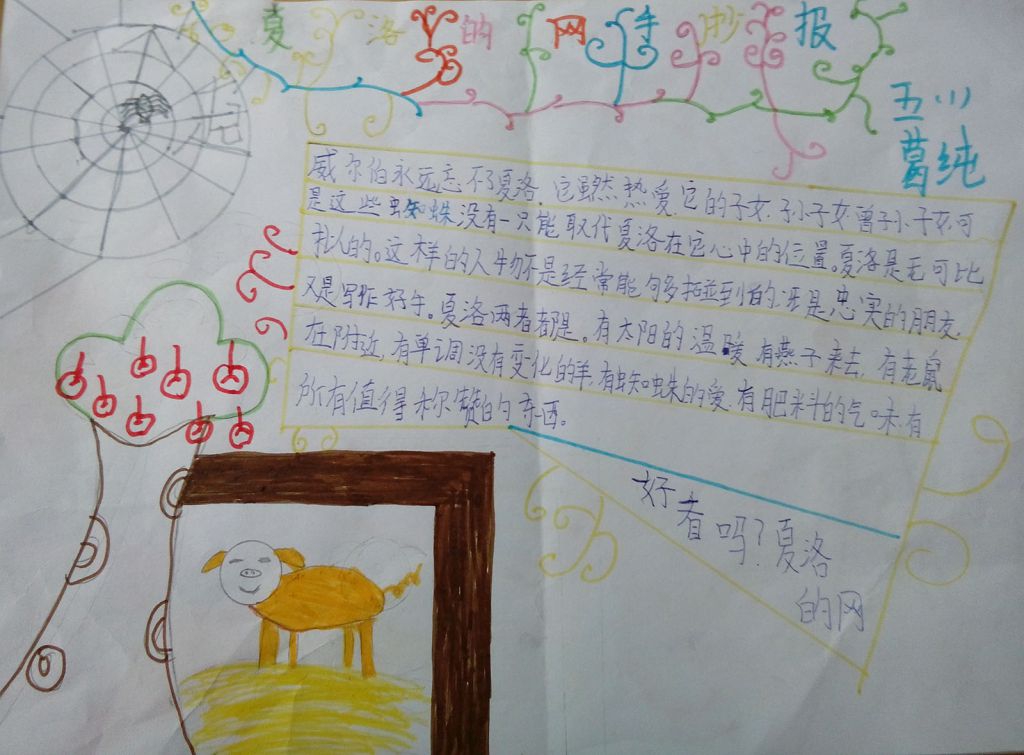 夏洛的网手抄报
五(1)
葛纯
威尔伯永远忘不了夏洛.它虽然热爱它的子女.孙子女.曾孙子女.可
是这些蜘蛛没有一只能取代夏洛在它心中的位置。夏洛是无可比
拟的。这样的人物不是经常能够多碰到的:既是忠实的朋友.
又是写作好手。夏洛两者都是。有太阳的温暖.有燕子来去.有老鼠
在附近.有单调没有变化的羊.有蜘蛛的爱.有肥料的气味.有
所有值得称赞的东西。
好看吗?夏洛
的网